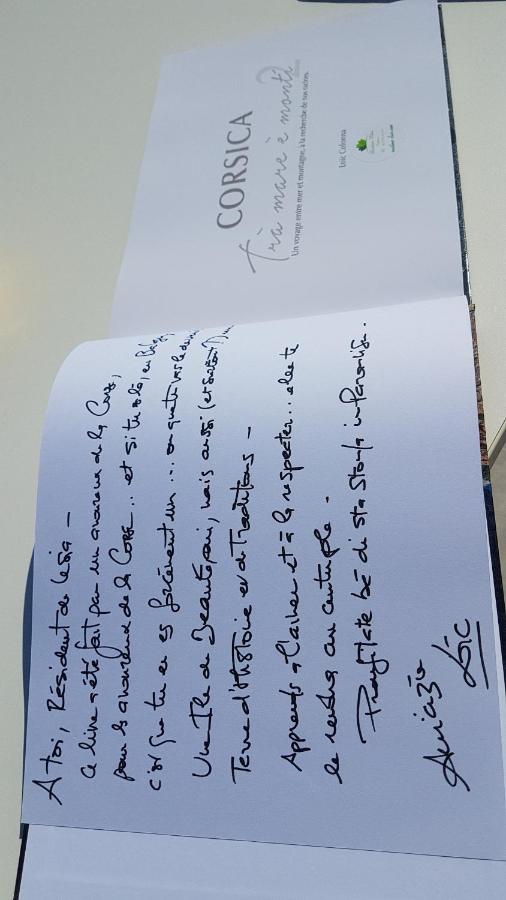 A toi, Résident de Lesia -
Ce livre a été fait par un amoureux de la Corse,
pour les amoureux de la Corse... et si tu es là, en
c'est que tu en es forcément un... en quête vers le
Une Ile de Beauté, oui, mais aussi (et surtout !)
Terre d'Histoire et de Traditions -
Apprends à l'aimer et à la respecter... elle te
le rendra au centuple -
Prufittate bè di sta Stonda in Paradisu.
Amicizia
Loïc
CORSICA
Trà mare è monti
Un voyage entre mer et montagne, à la recherche de nos racines.
Loïc Colonna